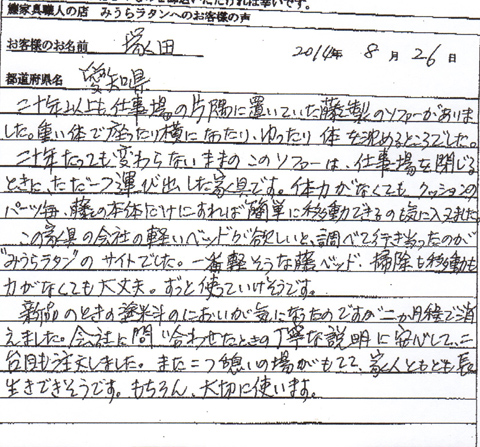 籐家具職人の店 みうらラタンへのお客様の声
お客様のお名前 塚田 2014年 8 月 26 日
都道府県名 愛知県
二十年以上も仕事場の片隅に置いていた籐製のソファーがありま
した。重い体で座ったり横になったり、ゆったり体を沈めるところでした。
二十年たっても変わらないままのこのソファーは、仕事場を閉じる
ときに、ただ一つ運び出した家具です。体力がなくても、クッションの
パーツ毎、籐の本体だけにすれば簡単に移動できるのも気に入ってました。
この家具の会社の軽いベッドが欲しいと、調べて行き当ったのが
"みうらラタン"のサイトでした。一番軽そうな籐ベッド、掃除も移動も
力がなくても大丈夫。ずっと使っていけそうです。
新品のときの塗料のにおいが気になったのですが二か月程で消
えました。会社に問い合わせたときの丁寧な説明に安心して、二
台目も注文しました。また一つ憩いの場がもてて、家人ともども長
生きできそうです。もちろん、大切に使います。